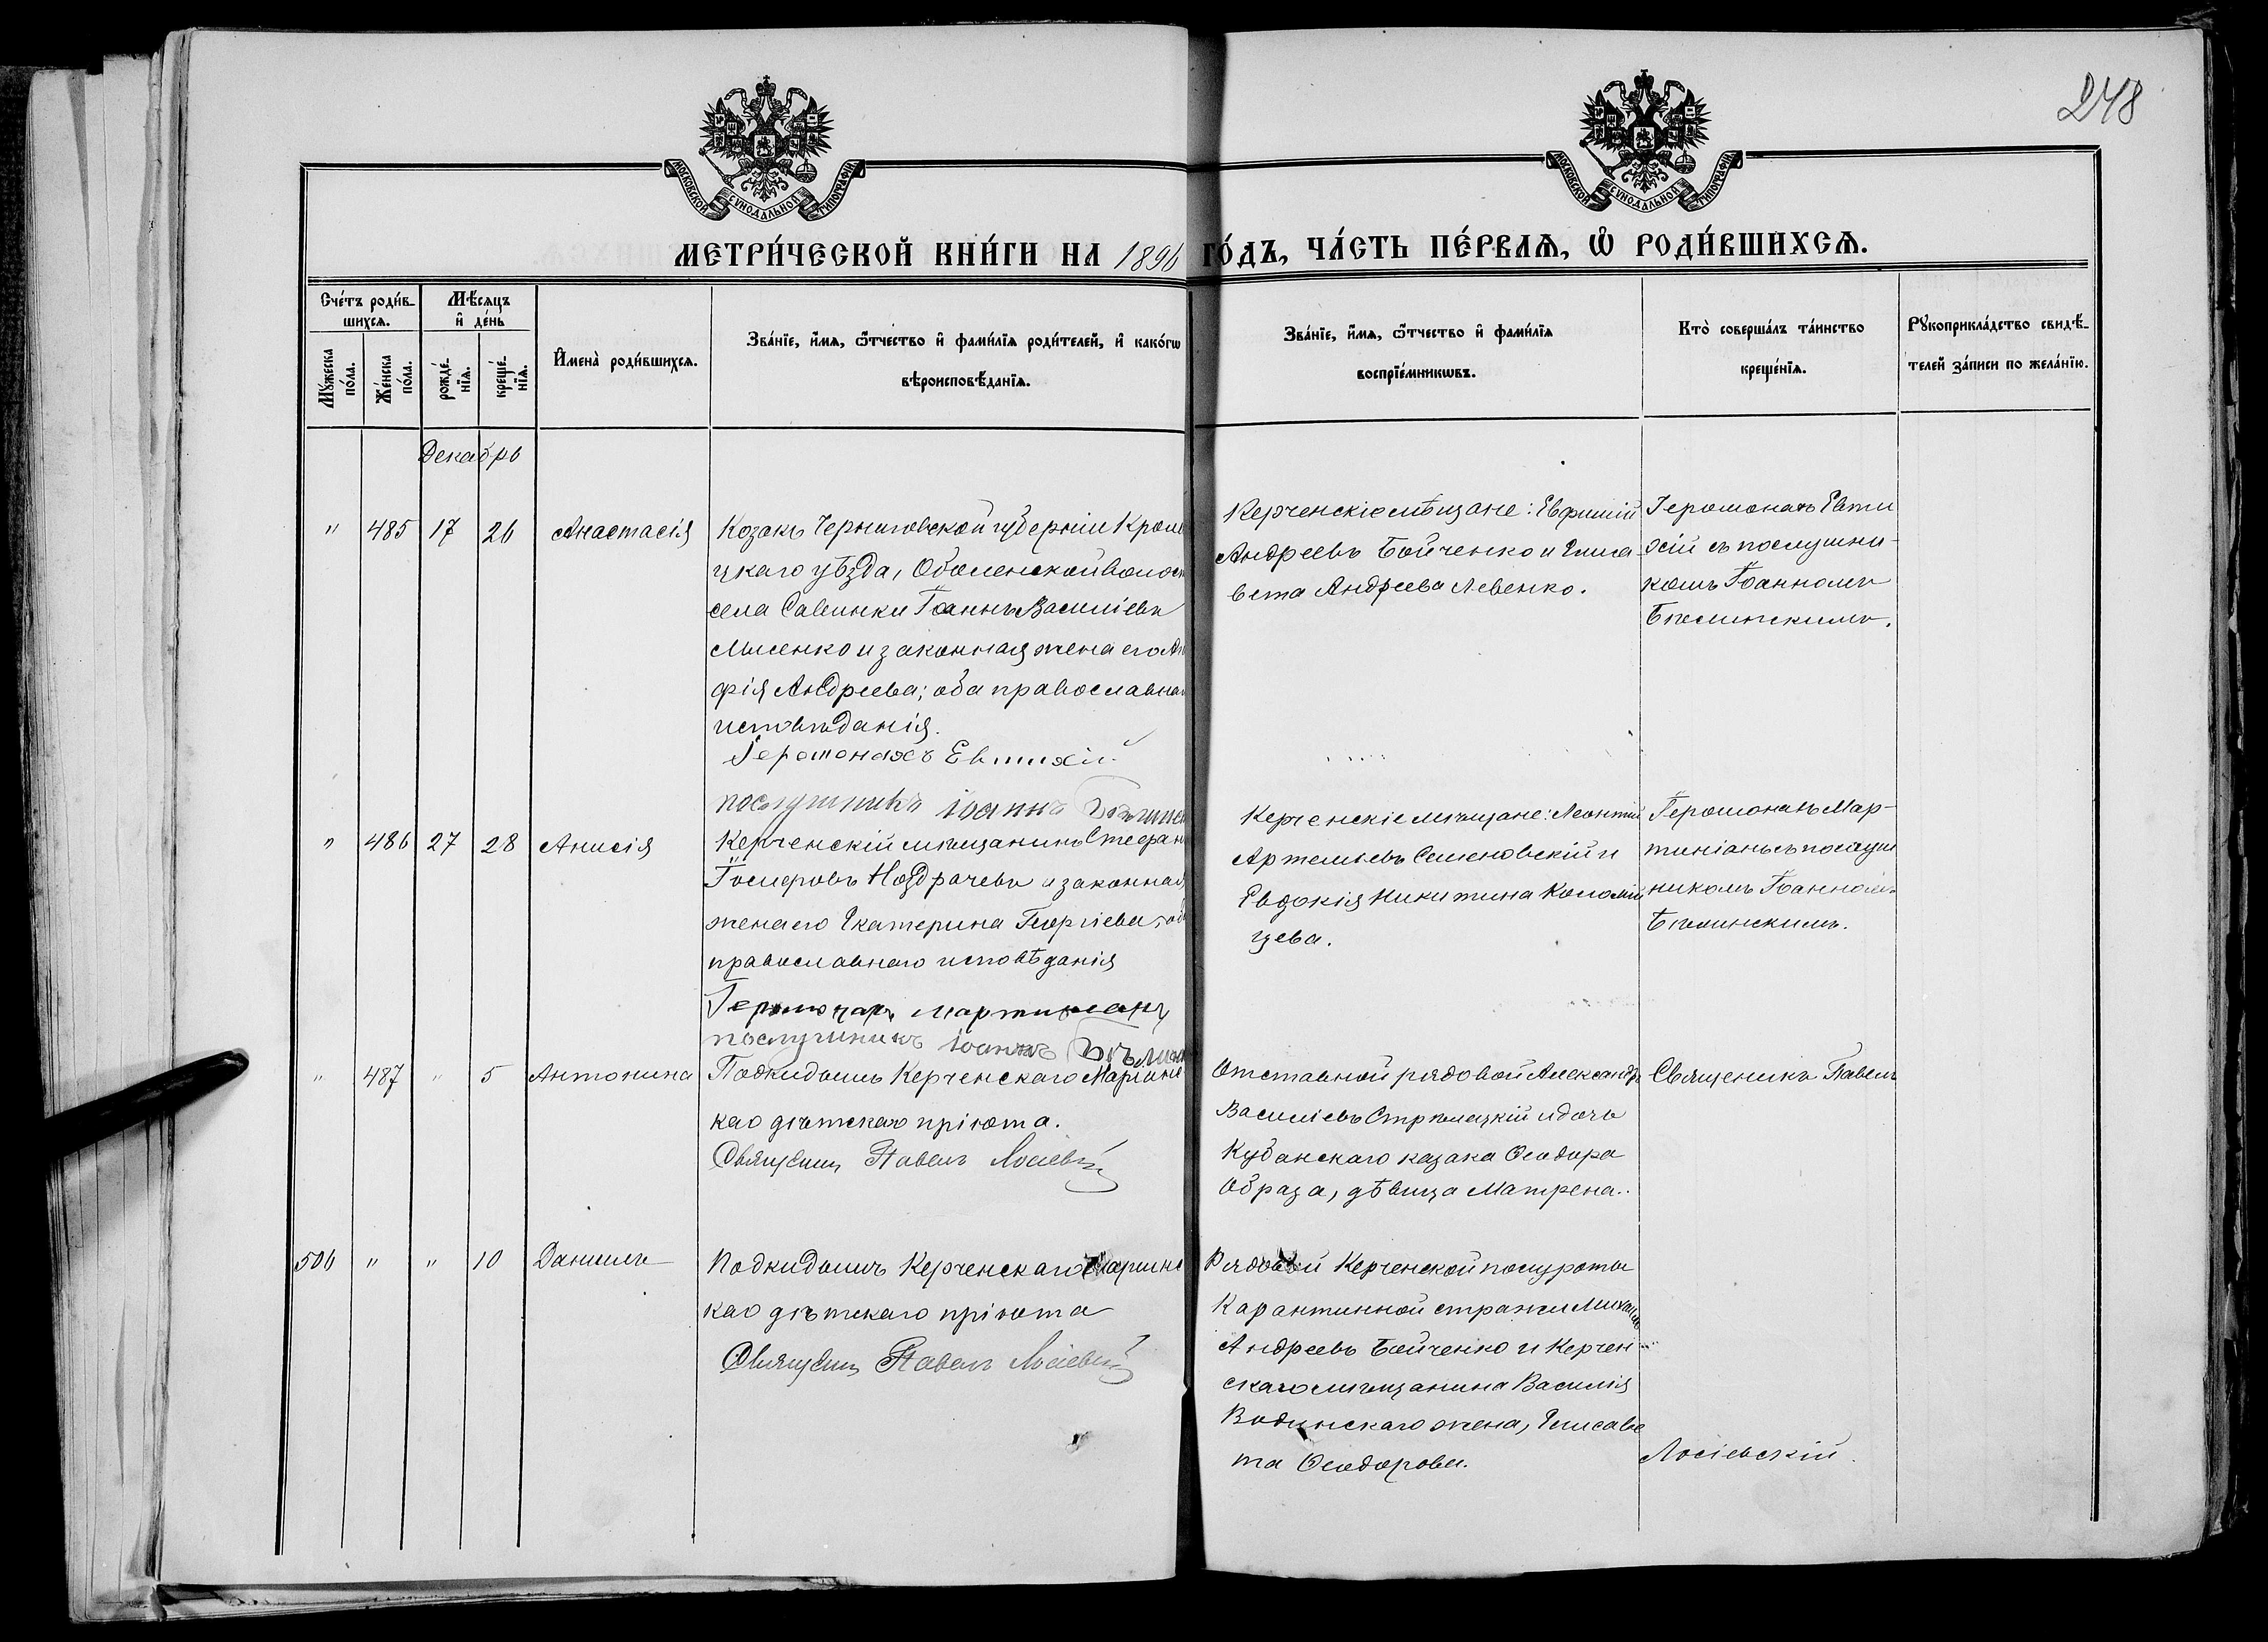 248
МОСКОВСКОЙ СУНОДАЛЬНОЙ ТИПОГРАФІИ
МОСКОВСКОЙ СУНОДАЛЬНОЙ ТИПОГРАФІИ
МЕТРИ́ЧЕСКОЙ КНИ́ГИ НА 1896 ГО́ДЪ, ЧА́СТЬ ПЕ́РВАѦ, Ѡ҆ РОДИ́ВШИХСѦ.
Сче́тъ роди́в-
шихсѧ.
Мꙋ́жеска
по́ла.
Же́нска
по́ла.
Мѣ́сѧцъ
и҆ де́нь
рожде́-
нїѧ.
креще́-
нїѧ.
И҆мена̀ роди́вшихсѧ.
Зва́нїе, и҆́мѧ, ѻ҆́тчество и҆ фами́лїѧ роди́телей, и҆ како́гѡ
вѣроисповѣ́данїѧ.
Зва́нїе, и҆́мѧ, ѻ҆́тчество и҆ фами́лїѧ
воспрїе́мникѡвъ.
Кто̀ соверша́лъ та́инство
креще́нїѧ.
Рꙋкоприкла́дство свидѣ́-
телей за́писи по жела́нїю.
Декабрь
" 485 17 26 Анастасія
Козакъ Черниговской губерніи Кроле
цкаго уѣзда, Оболенской волост
села Савинки Іоаннъ Василіевъ
Мисенко и законная жена его
фія Андреева; оба православна
исповѣданія.
Іеромонахъ Евтихій
послушникъ Іоаннъ Бѣлинск
Керченскіе мѣщане: Евфимій
Андреевъ Бойченко и Елиса-
вета Андреева Левенко.
Іеромонахъ Евти
хій съ послушни-
комъ Іоанномъ
Бѣлинскимъ.
" 486 27 28 Анисія
Керченскій мѣщанинъ Стефанъ
Ноздрачевъ и законная
жена его Екатерина Георгіева, об
православнаго исповѣданія
Іеромонахъ Мартиніанъ
послушникъ Іоаннъ Бѣлинск
Керченскіе мѣщане: Леонтій
Артемьевъ Семеновскій и
Евдокія Никитина Коломій
цева.
Іеромонахъ Мар-
тиніанъ съ послуш
никомъ Іоанномъ
Бѣлинскимъ.
" 487 " 5 Антонина
Подкидышъ Керченскаго Маріинс
каго дѣтскаго пріюта.
Священникъ Павелъ Лосіевскій
Отставной рядовой Александръ
Василіевъ Стрѣлецкій и дочь
Кубанскаго казака Ѳеодора
Образа, дѣвица Матрена.
Священикъ Павелъ
506 " " 10 Даниилъ
Подкидышъ Керченскаго Маріинс
каго дѣтскаго пріюта
Священникъ Павелъ Лосіевскій
Рядовой Керченской полуроты
Карантинной стражи Михаилъ
Андреевъ Бойченко и Керчен-
скаго мѣщанина Василія
Водинскаго жена, Елисаве
та Ѳеодорова.
Лосіевскій.